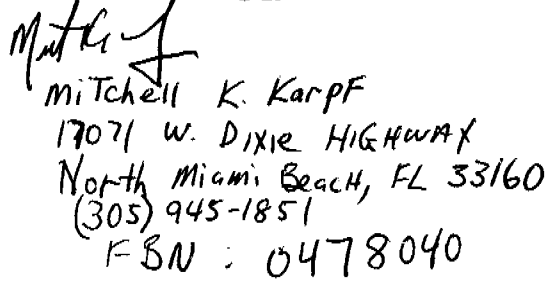 Mitchell K. Karpf
17071 W. Dixie Highway
North Miami Beach, FL 33160
(305) 945-1851
FBN : 0478040